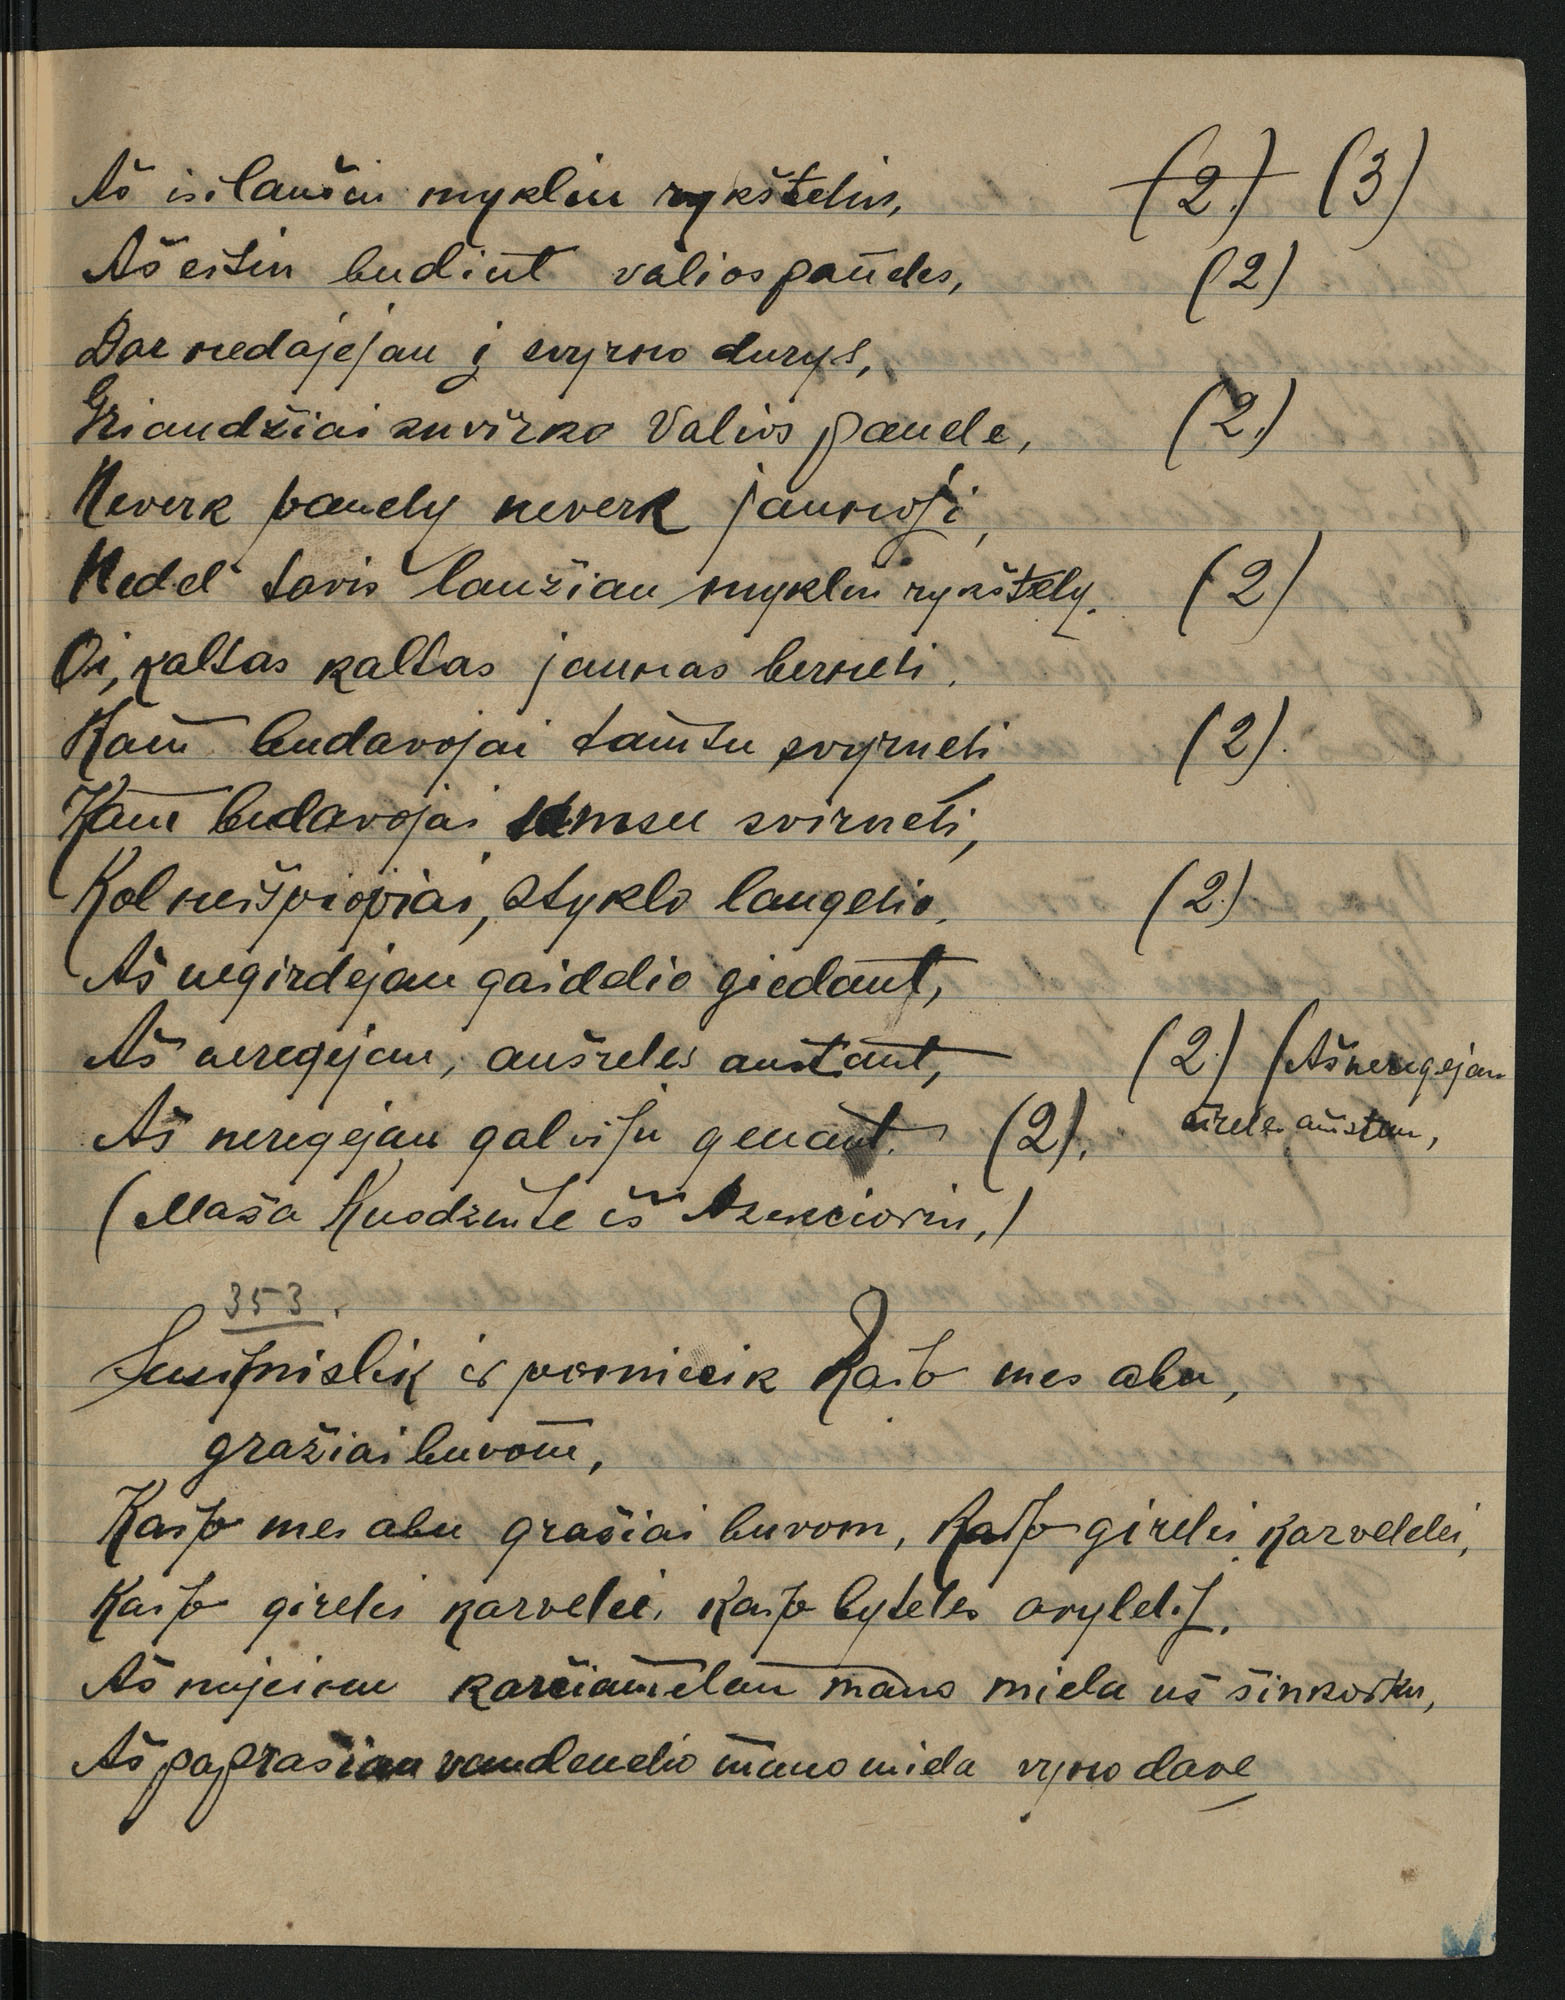 Aš išilaušiu myklin rykštelin, (2.) (3)
Aš eisin budint valios paneles, (2)
Dar nedajejau į svyrno durys,
Griaudžiai suvirko Valios panele, (2.)
Neverk panely neverk jaunoji,
Nedel tavis laužiau myklin rykštely. (2)
Oi, kaltas kaltas jaunas berneli.
Kam budavojai tamsu svyrneli (2).
Kam budavojai tamsu svirneli,
Kol neišpiopiai, styklo langelio. (2)
Aš negirdejau gaidelio giedant,
Aš neregejau, aušreles auštant, (2.) (Aš neregejau
Aš neregejau galviju genant. (2).
(Maša Kuodžiute iš
353.
ir Kaip mes abu,
gražiai buvom,
Kaip mes abu grašiai buvom, Kaip girelei karvelelei,
Kaip girelei karvelei, Kaip byteles avylelij.
Aš nujeinu karčiamelan mano miela uš šinkorku,
Aš paprašiau vandenelio mano miela vyno dave